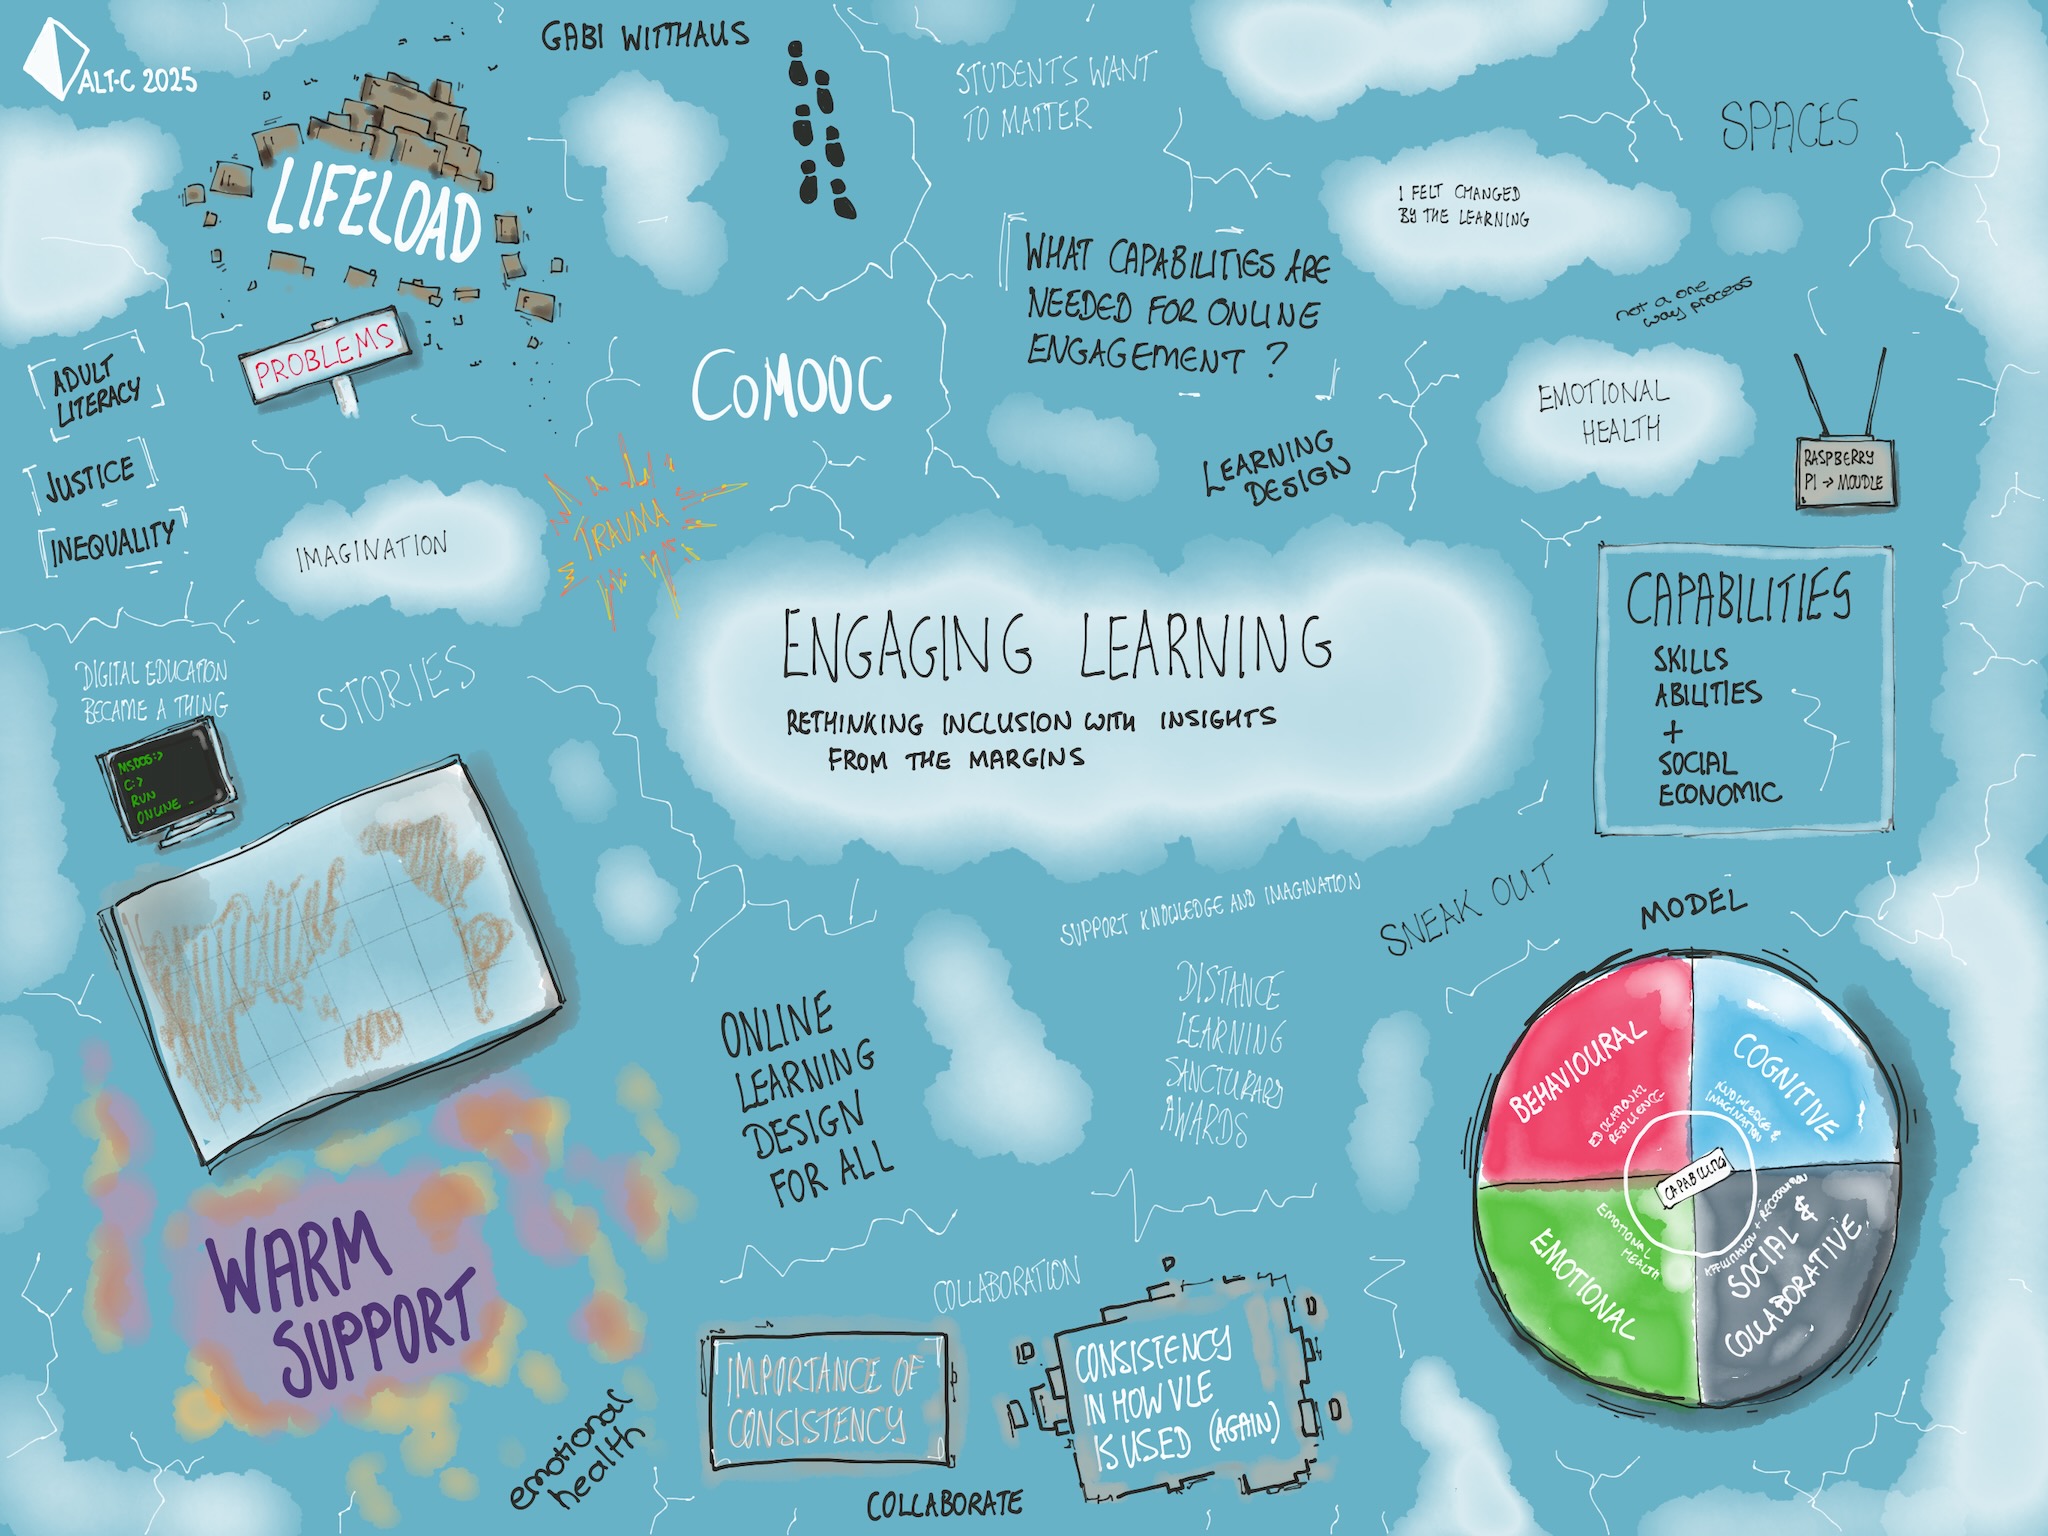 ALT-C 2025
GABI WITTHAUS
LIFELOAD
PROBLEMS
STUDENTS WANT
TO MATTER
SPACES
I FELT CHANGED
BY THE LEARNING
WHAT CAPABILITIES ARE
NEEDED FOR ONLINE
ENGAGEMENT ?
not a one
way process
ADULT
LITERACY
JUSTICE
INEQUALITY
CoMOOC
EMOTIONAL
HEALTH
RASPBERRY
PI → MOUDLE
LEARNING
DESIGN
IMAGINATION
TRAUMA
ENGAGING LEARNING
RETHINKING INCLUSION WITH INSIGHTS
FROM THE MARGINS
CAPABILITIES
SKILLS
ABILITIES
+
SOCIAL
ECONOMIC
DIGITAL EDUCATION
BECAME A THING
STORIES
MSDOS:>
C:>
RUN
ONLINE _
SUPPORT KNOWLEDGE AND IMAGINATION
SNEAK OUT
MODEL
ONLINE
LEARNING
DESIGN
FOR ALL
DISTANCE
LEARNING
SANCTURARY
AWARDS
BEHAVIOURAL
EDUCATIONAL
RESILIENCE
COGNITIVE
KNOWLEDGE &
IMAGINATION
EMOTIONAL
EMOTIONAL
HEALTH
AFFILIATION + RECOGNITION
SOCIAL &
COLLABORATIVE
WARM
SUPPORT
emotional
health
COLLABORATION
IMPORTANCE OF
CONSISTENCY
CONSISTENCY
IN HOW VLE
IS USED (AGAIN)
COLLABORATE